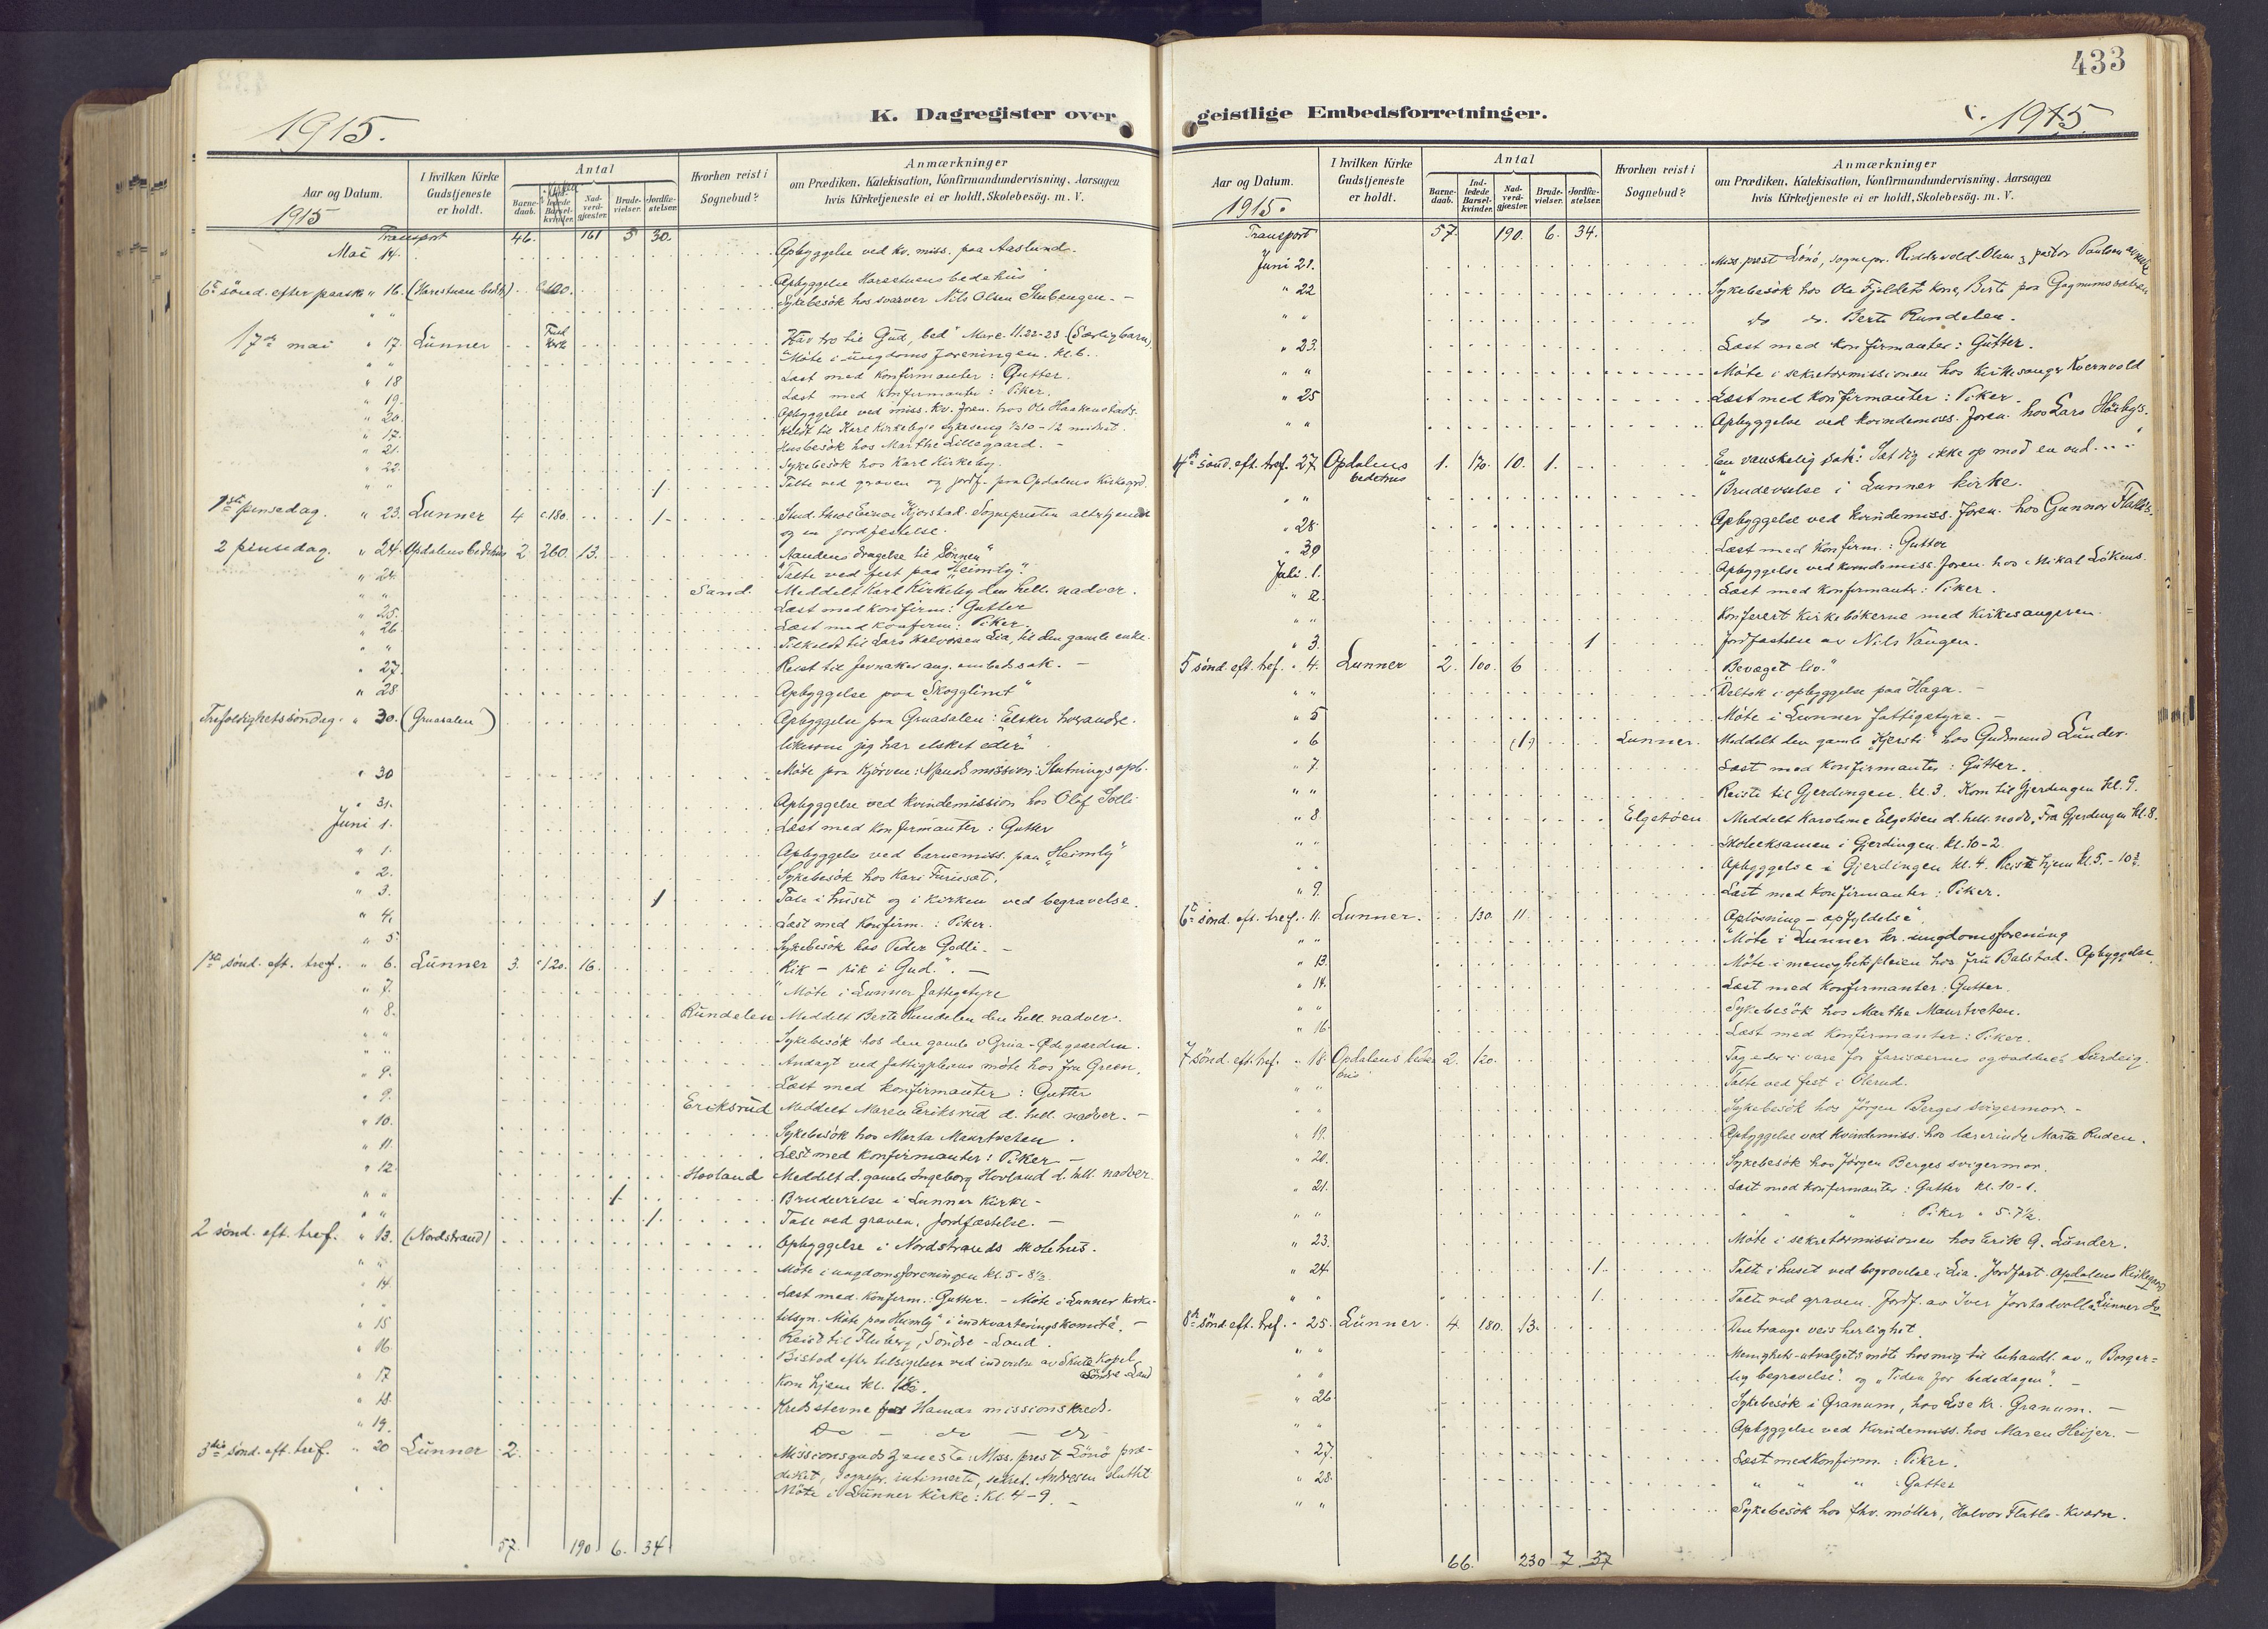 433
1915.
K. Dagregister over
Aar og Datum.
I hvilken Kirke Gudstjeneste er holdt.
Antal
Barne-daab.
Nad-verd-gjæster.
Brude-vielser.
Jordfæ-stelser.
Hvorhen reist i Sognebud?
Anmærkninger
om Prædiken, Katekisation, Konfirmandundervisning, Aarsagen
hvis Kirketjeneste ei er holdt, Skolebesøg. m. V.
1915
Transport 46. 161 5 30.
Mai 14. Opbyggelse ved kv. miss. paa Aaslund.
6te sönd. efter paaske " 16. (Harestuen bedeh) c.100. Opbyggelse Harestuens bedehus
" " Sykebesök hos svarver Nils Olsen Stubengen. -
17de mai " 17. Lunner Hav tro til Gud, bed" Marc. 11.22-23. (Særlig barn)
" " Möte i ungdomsforeningen. kl. 6.
" 18 Læst med konfirmanter: Gutter.
" 19. Læst med konfirmanter: Piker.
" 20. Opbyggelse ved miss. kv. foren. hos Ole Haakenstads.
" 17. Kaldt til Karl Kirkebys sykeseng ½10-12 midnat.
" 21. Husbesök hos Marthe Lillegaard. -
" 22. Sykebesök hos Karl Kirkeby.
" " 1. Talte ved graven og jordf. paa Opdalens Kirkegrd.
1ste pinsedag. " 23. Lunner 4 c.180. 1- Stud. theol Einar Kjorstad. Sognepresten altertjeneste
og en jordfestelse.
2 pinsedag. " 24. Opdalens bedehus 2 260. 13. Aandens dragelse til Sönnen"
" 24. Talte ved fest paa "Heimly".
" " Sand. Meddelt Karl Kirkeby den hell. nadver.
" 25. Læst med konfirm: Gutter
" 26. Læst med konfirm: Piker.
" " Tilkaldt til Lars Halvorsen Lia, til den gamle enke.
" 27. Reist til Jevnaker ang. embedssak. -
" 28 Opbyggelse paa "Skogglimt"
Trefoldighetssöndag. " 30. (Gruasalen) Opbyggelse paa Gruasalen: Elsker hverandre.
likesom jeg har elsket eder"
" 30 Möte paa Kjörven: Mandsmission: Slutnings opb.
" 31. Opbyggelse ved kvindemission hos Olaf Solli
Juni 1. Læst med konfirmanter: Gutter
" 1. Opbyggelse ved barnemiss. paa "Heimly"
" 2. Sykebesök hos Kari Furuset.
" 3. 1 Tale i huset og i kirken ved begravelse.
" 4. Læst med konfirm.: Piker.
" 5. Sykebesök hos Peder Godli. -
1ste sönd. eft. tref. " 6. Lunner 3. c120. 16. Rik - rik i Gud." -
" 7. Möte i Lunner fattigstyre
" 8. Rundelen Meddelt Berte Rundelen den hell. nadver.
" " Sykebesök hos den gamle v Grua-Ödegaarden.
" " Andagt ved fattigpleiens möte hos Fru Green.
" 9. Læst med konfirmanter: Gutter
" 9. Eriksrud Meddelt Maren Eriksrud d. hell. nadver. -
" 10. Sykebesök hos Marta Maurtveten.
" 11. Læst med konfirmanter: Piker -
" 12. Hovland Meddelt d. gamle Ingeborg Hovland d. hell. nadver.
" " 1. Brudevielse i Lunner Kirke -
" " 1. Tale ved graven. Jordfæstelse. -
2 sönd. eft. tref. " 13. (Nordstrand) Opbyggelse i Nordstrands skolehus.
" " Möte i ungdomsforeningen kl. 5-8½.
" 14 Læst med konfirm.: Gutter. - Möte i Lunner kirke-
" " tilsyn. Möte paa "Heimly" i indkvarteringskomité. -
" 15 Reist til Fluberg, Söndre-Land.
" 16. Bistod efter tilsigelsen ved indvielse av Skute Kapel,
Söndre Land
" 17 Kom hjem kl.
" 18. Kredsstevne Hamar missionskreds.
" 19. Do - do - do
3die sönd. eft. tref. " 20 Lunner 2. Missionsgudstjeneste: Miss. prest Lönö præ-
diket, Sognepr. intimerte, sekret. Andresen sluttet
Möte i Lunner kirke: kl. 4-9. -
57. 190 6. 34
geistlige Embedsforretninger.
1915.
Aar og Datum.
I hvilken Kirke Gudstjeneste er holdt.
Antal
Barne-daab.
Ind-ledede Barsel-kvinder.
Nad-verd-gjæster.
Brude-vielser.
Jordfæ-stelser.
Hvorhen reist i Sognebud?
Anmærkninger
om Prædiken, Katekisation, Konfirmandundervisning, Aarsagen
hvis Kirketjeneste ei er holdt, Skolebesøg. m. V.
1915.
Transport 57. 190. 6. 34.
Juni 21. Miss. prest Lönö, sognepr. Riddervold Olsen & pastor Paulsen
" 22 Sykebesök hos Ole Fjeldets kone, Berte paa Gagnums
" " do do. Berte Rundelen.
" 23. Læst med konfirmanter: Gutter.
" " Möte i sekretærmissionen hos kirkesanger Kvernvold
" 25 Læst med konfirmanter: Piker.
" " Opbyggelse ved kvindemiss. foren. hos Lars Höibys.
4de sönd. eft. tref. 27. Opdalens bedehus 1. 170. 10. 1. En vanskelig sak: Sæt dig ikke op mod en ond..."
" " Brudevielse i Lunner kirke.
" 28. Opbyggelse ved kvindemiss. foren. hos Gunnar Flatla's.
" 30 Læst med konfirm.: Gutter
Juli 1. Opbyggelse ved kvindemiss. foren. hos Mikal Lökens.
" 2. Læst med konfirmanter: Piker.
" " Konferert kirkebökerne med kirkesangeren.
" 3. 1 Jordfæstelse av Nils Vangen.
5 sönd. eft. tref. " 4. Lunner 2. 100. 6 "Bevæget liv."
" " Deltok i opbyggelse paa Haga. -
" 5 Möte i Lunner fattigstyre. -
" 6 (1.) Lunner. Meddelt den gamle "Kjersti" hos Gudmund Lunder.
" 7. Læst med konfirmanter: Gutter.
" " Reiste til Gjerdingen. kl. 3. Kom til Gjerdingen kl. 9.
" 8. Elgstöen Meddelt Karoline Elgstöen d. hell. nadv. Fra Gjerdingen kl. 8.
" " Skoleeksamen i Gjerdingen. kl. 10-2.
" " Opbyggelse i Gjerdingen kl. 4. Reiste hjem kl. 5. - 10½.
" 9. Læst med konfirmanter: Piker.
6te sönd. eft. tref. " 11. Lunner. 130. 11. Oplösning - opfyldelse".
" " Möte i Lunner kr. ungdomsforening
" 13. Möte i menighetspleien hos fru Balstad. Opbyggelse
" 14. Læst med konfirmanter: Gutter.
" " Sykebesök hos Marthe Maurtveten.
" 16. Læst med konfirmanter: Piker.
7 sönd. eft. tref. " 18. Opdalens bedehus 2. 120. Tag eder i vare for farisæernes og sadduk. surdeig.
" " Talte ved fest i Olerud.
" " Sykebesök hos Jörgen Berges svigermor. -
" 19. Opbyggelse ved kvindemiss. hos lærerinde Marta Ruden.
" 20. Sykebesök hos Jörgen Berges svigermor.
" 21. Læst med konfirmanter: Gutter kl. 10-1.
" " " " " : Piker " 5-7½.
" 23. Möte i sekretærmissionen hos Erik G. Lunder.
" 24. 1. Talte i huset ved begravelse i Lia. Jordfæst. Opdalens Kirkegaard
" " 1. Talte ved graven. Jordf. av Iver Jorstadvolla. Lunner do
8de sönd. eft. tref. " 25. Lunner. 4. 180. 13. Den trange veis herlighet.
" " Menighets-utvalgets möte hos mig til behandl. av "Borger=
" " lig begravelse". og "Tiden for bededagen". -
" 26 Sykebesök i Granum, hos Lise Kr. Granum. -
" " Opbyggelse ved Kvindemiss. hos Maren Heijer. -
" 27. Læst med konfirm.: Piker.
" 28. " " " : Gutter
" " Sykebesök hos fhv. möller, Halvor Flatla-Kværn.
66. 230 7. 37